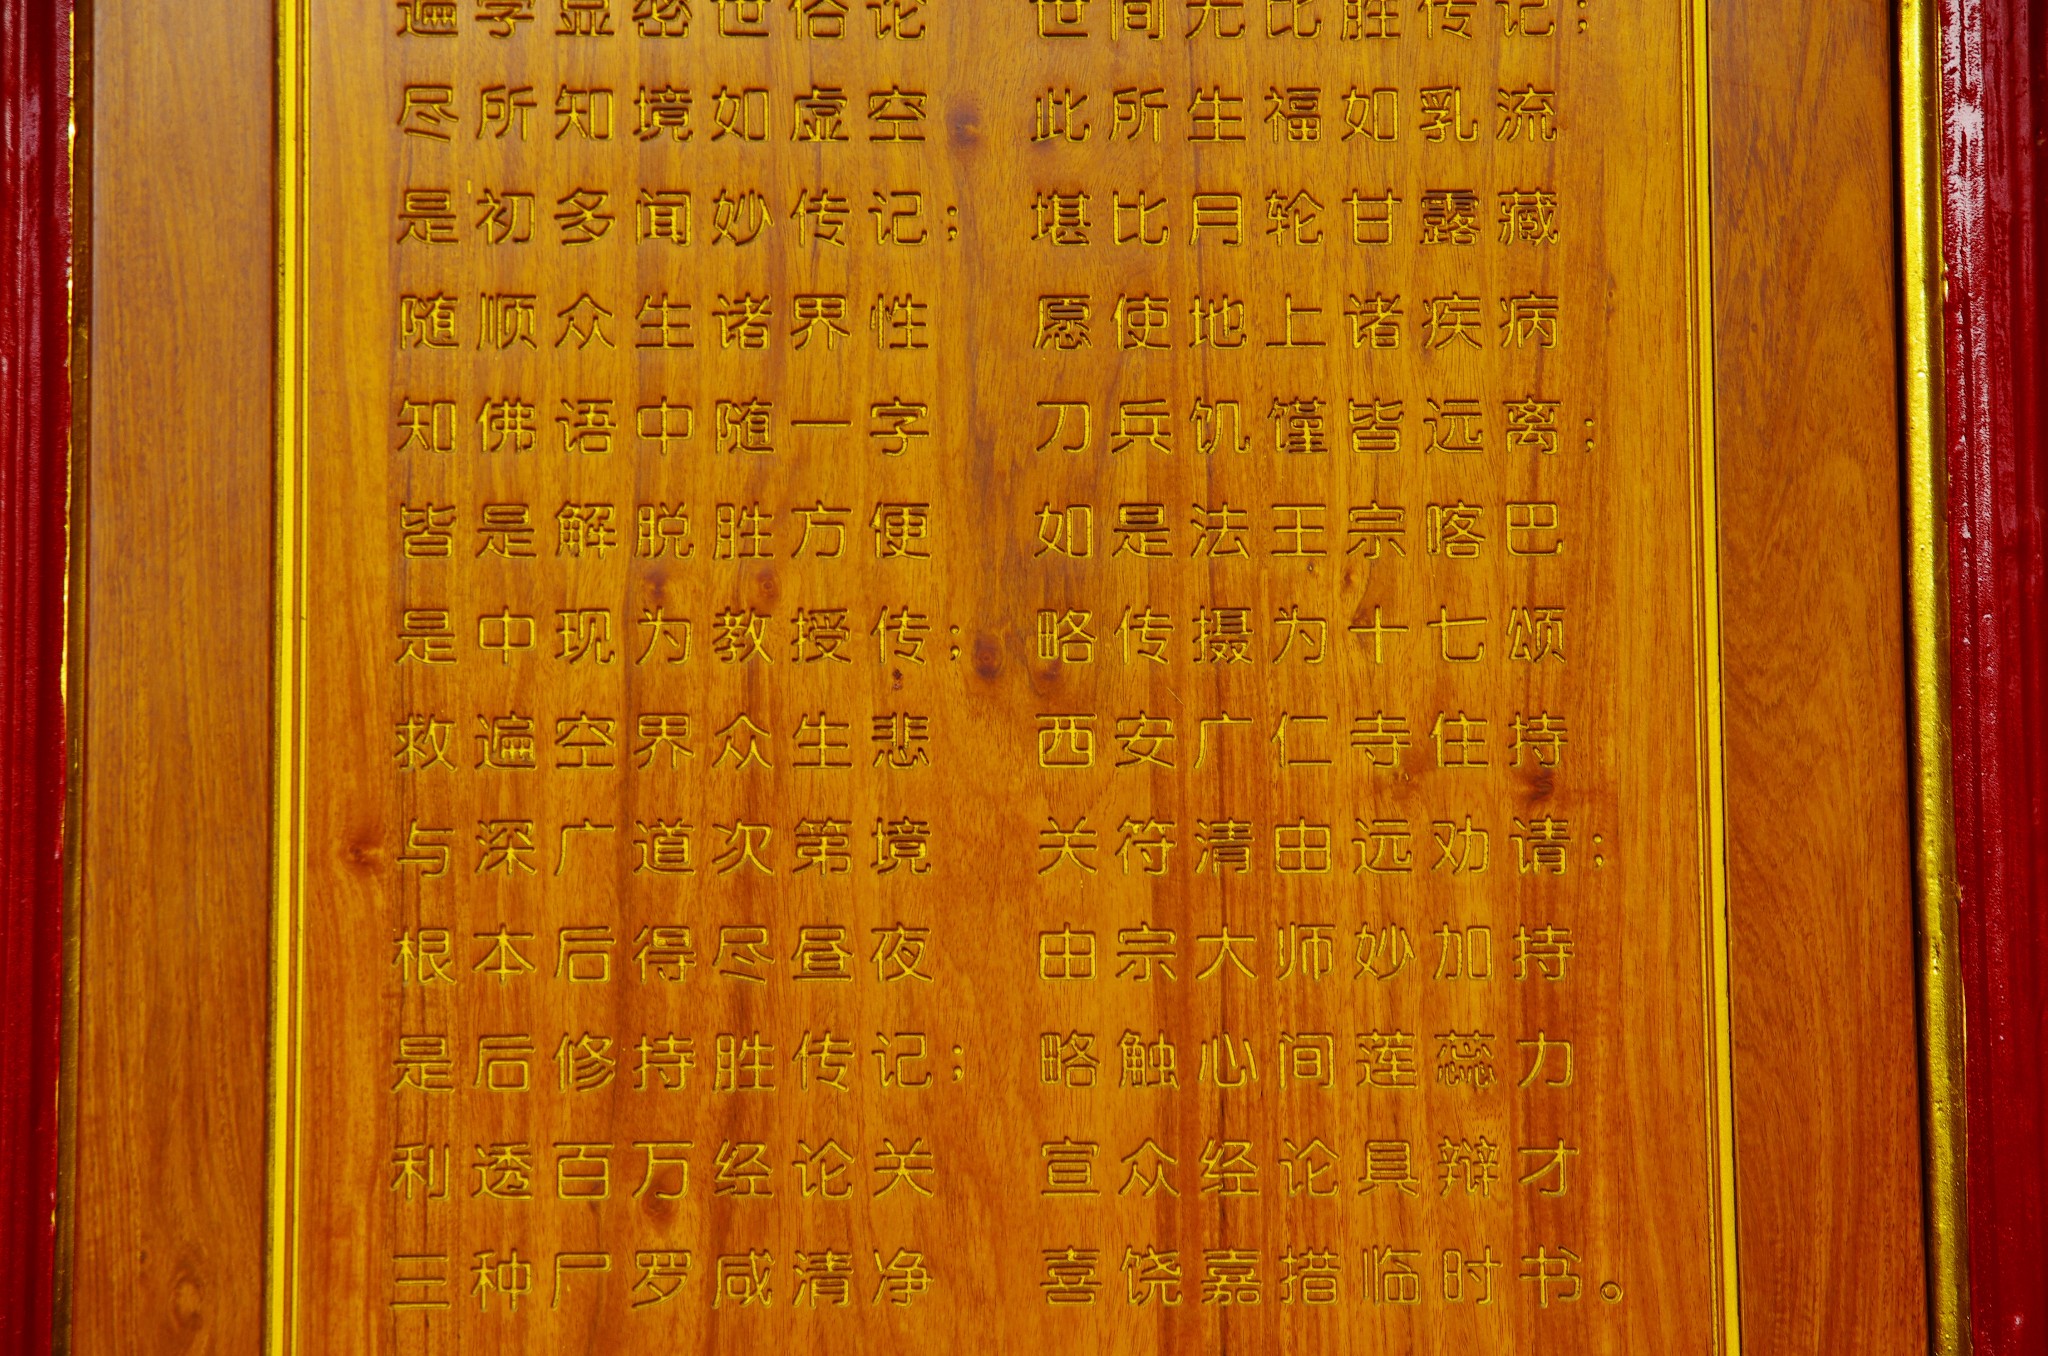 遍学显密世俗论
尽所知境如虚空
是初多闻妙传记；
随顺众生诸界性
知佛语中随一字
皆是解脱胜方便
是中现为教授传；
救遍空界众生悲
与深广道次第境
根本后得尽昼夜
是后修持胜传记；
利透百万经论关
三种尸罗咸清净
世间无比胜传记；
此所生福如乳流
堪比月轮甘露藏
愿使地上诸疾病
刀兵饥馑皆远离；
如是法王宗喀巴
略传摄为十七颂
西安广仁寺住持
关符清由远劝请；
由宗大师妙加持
略触心间莲蕊力
宣众经论具辩才
喜饶嘉措临时书。